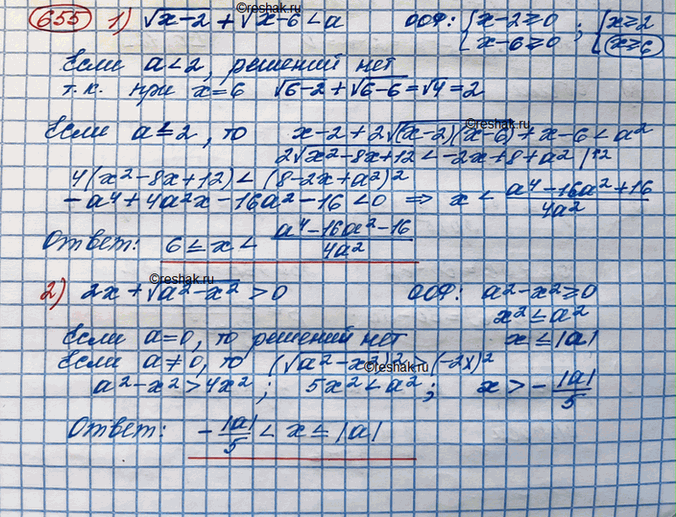 655 1) √x-2 + √x-6 < a ООФ: {x-2≥0 x-6≥0 ; {x≥2 x≥6
©reshak.ru
Если a<2, решений нет
т.к. при x=6 √6-2 + √6-6 = √4 = 2
Если a≤2, то x-2+2√(x-2)(x-6)+x-6<a²
©reshak.ru
2√x²-8x+12 < -2x+8+a² |↑2
4(x²-8x+12)<(8-2x+a²)²
-a⁴+4a²x-16a²-16<0 ⇒ x < a⁴-16a²+16 / 4a²
Ответ: 6≤x< a⁴-16a²-16 / 4a²
©reshak.ru
2) 2x+√a²-x² >0 ООФ: a²-x²≥0
x²≤a²
Если a=0, то решений нет x≤|a|
Если a≠0, то (√a²-x²)² (-2x)²
©reshak.ru
a²-x²>4x² ; 5x²<a² ; x>- |a| / 5
Ответ: - |a| / 5 < x ≤ |a|